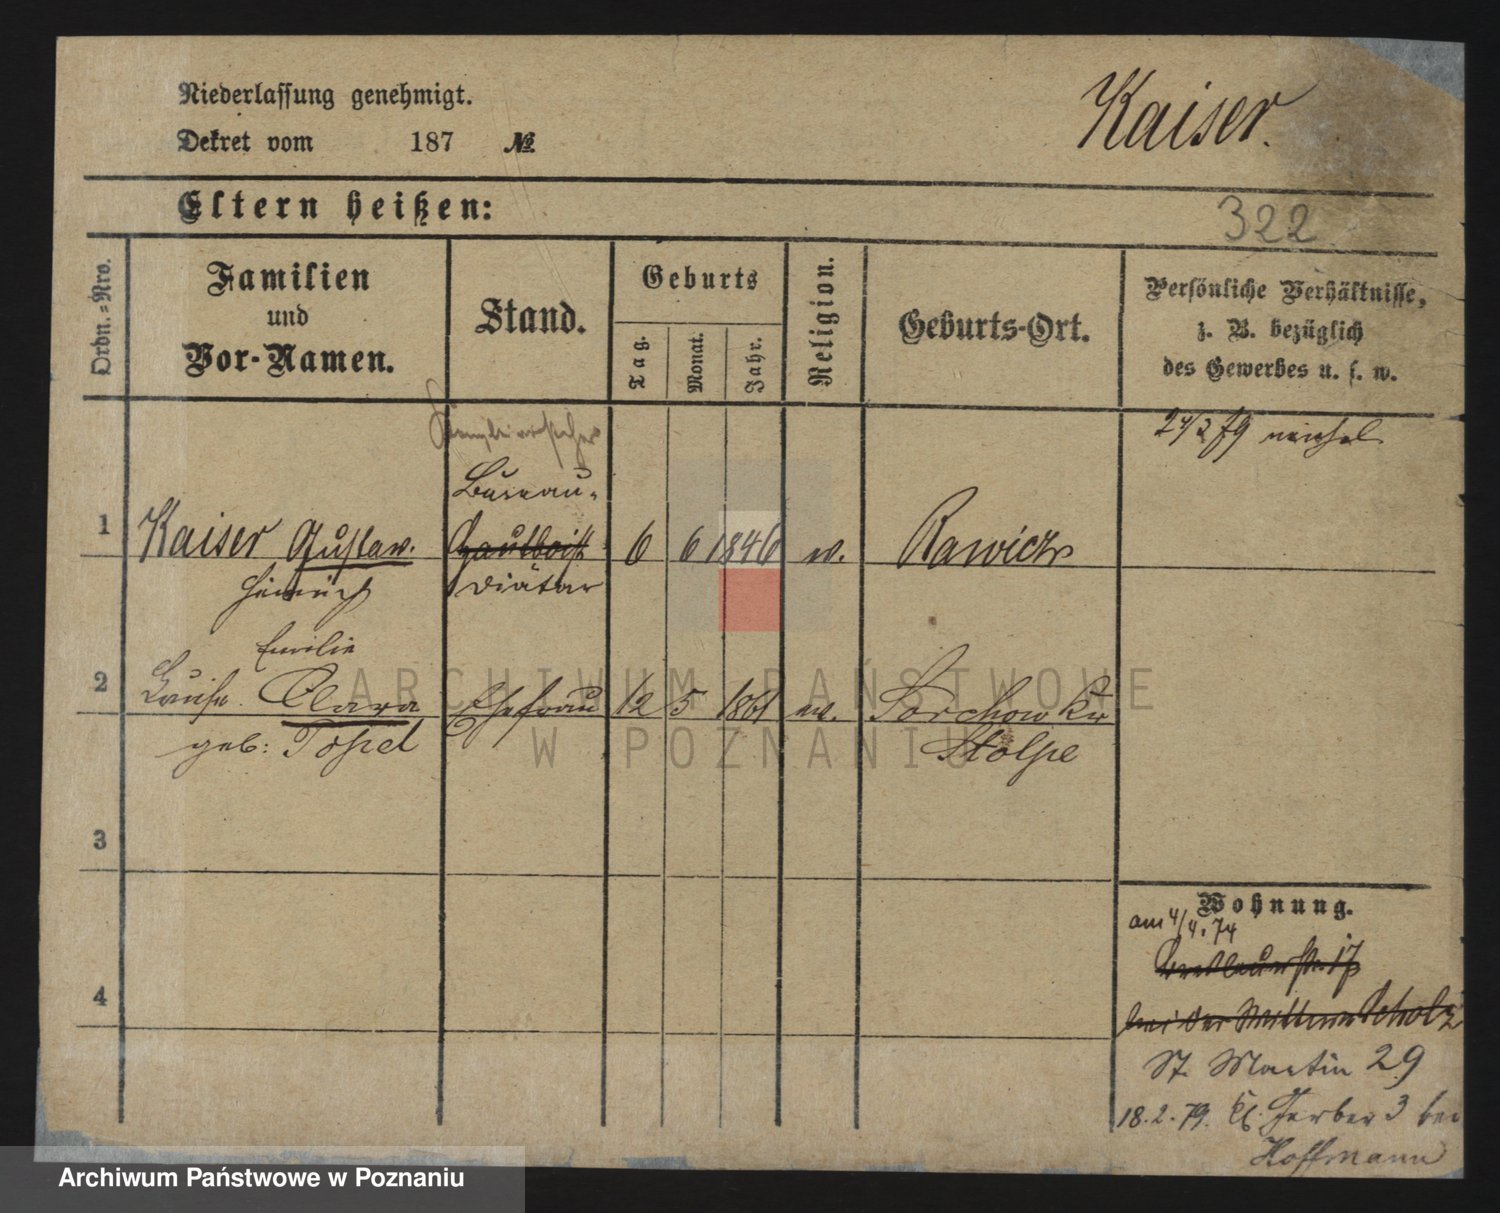 Niederlassung genehmigt.
Dekret vom 187 №
Kaiser.
Eltern heißen:
322
Ordn.-Nro.
Familien
und
Vor-Namen.
Stand.
Geburts
Tag.
Monat.
Jahr.
Religion.
Geburts-Ort.
Persönliche Verhältnisse,
z. B. bezüglich
des Gewerbes u. s. w.
Bureau-
1 Kaiser Gustav. Hautboist 6 6 1846 ev. Rawicz
Heinrich Diätar
Emilie
2 Luise Clara Ehefrau 12 5 1861 ev.
geb: Stolpe
3
4
Wohnung.
am 4/4. 74
Breslauerstr. 17
bei der Wittwe Scholz
St. Martin 29
18.2.79. Kl. Gerber 3 bei
Hoffmann
ARCHIWUM PAŃSTWOWE
W POZNANIU
Archiwum Państwowe w Poznaniu